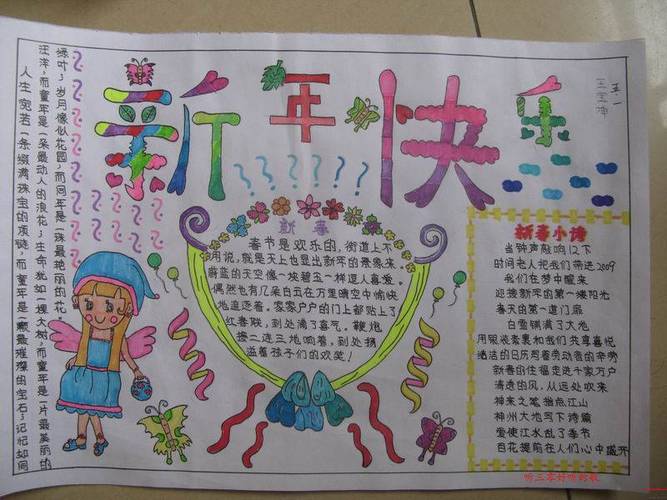 新年快乐
五一
人生宛若一条缀满珠宝的项链，而童年是一颗最璀璨的宝石；记忆如同
汪洋，而童年是一朵最动人的浪花；生命犹如一棵大树，而童年是一片最美丽的
绿叶；岁月像似花园，而童年是一株最艳丽的花。
新春
春节是欢乐的，街道上不
用说，就是天上也显出新年的景象来。
蔚蓝的天空像一块碧玉一样逗人喜爱。
偶然也有几朵白云在万里晴空中愉快
地追逐着。家家户户的门上都贴上了
红春联，到处满了喜气。鞭炮
接二连三地响着，到处
溢着孩子们的欢笑！
新春小诗
当钟声敲响12下
时间老人把我们带进2009
我们在梦中醒来
迎接新年的第一缕阳光
春天的第一道门扉
白雪铺满了大地
用银装素裹和我们共享喜悦
皓洁的日历写着劳动者的辛劳
新春的祝福走进千家万户
清透的风，从远处吹来
神来之笔指点江山
神州大地写下诗篇
爱使江水乱了季节
百花提前在人们心中盛开